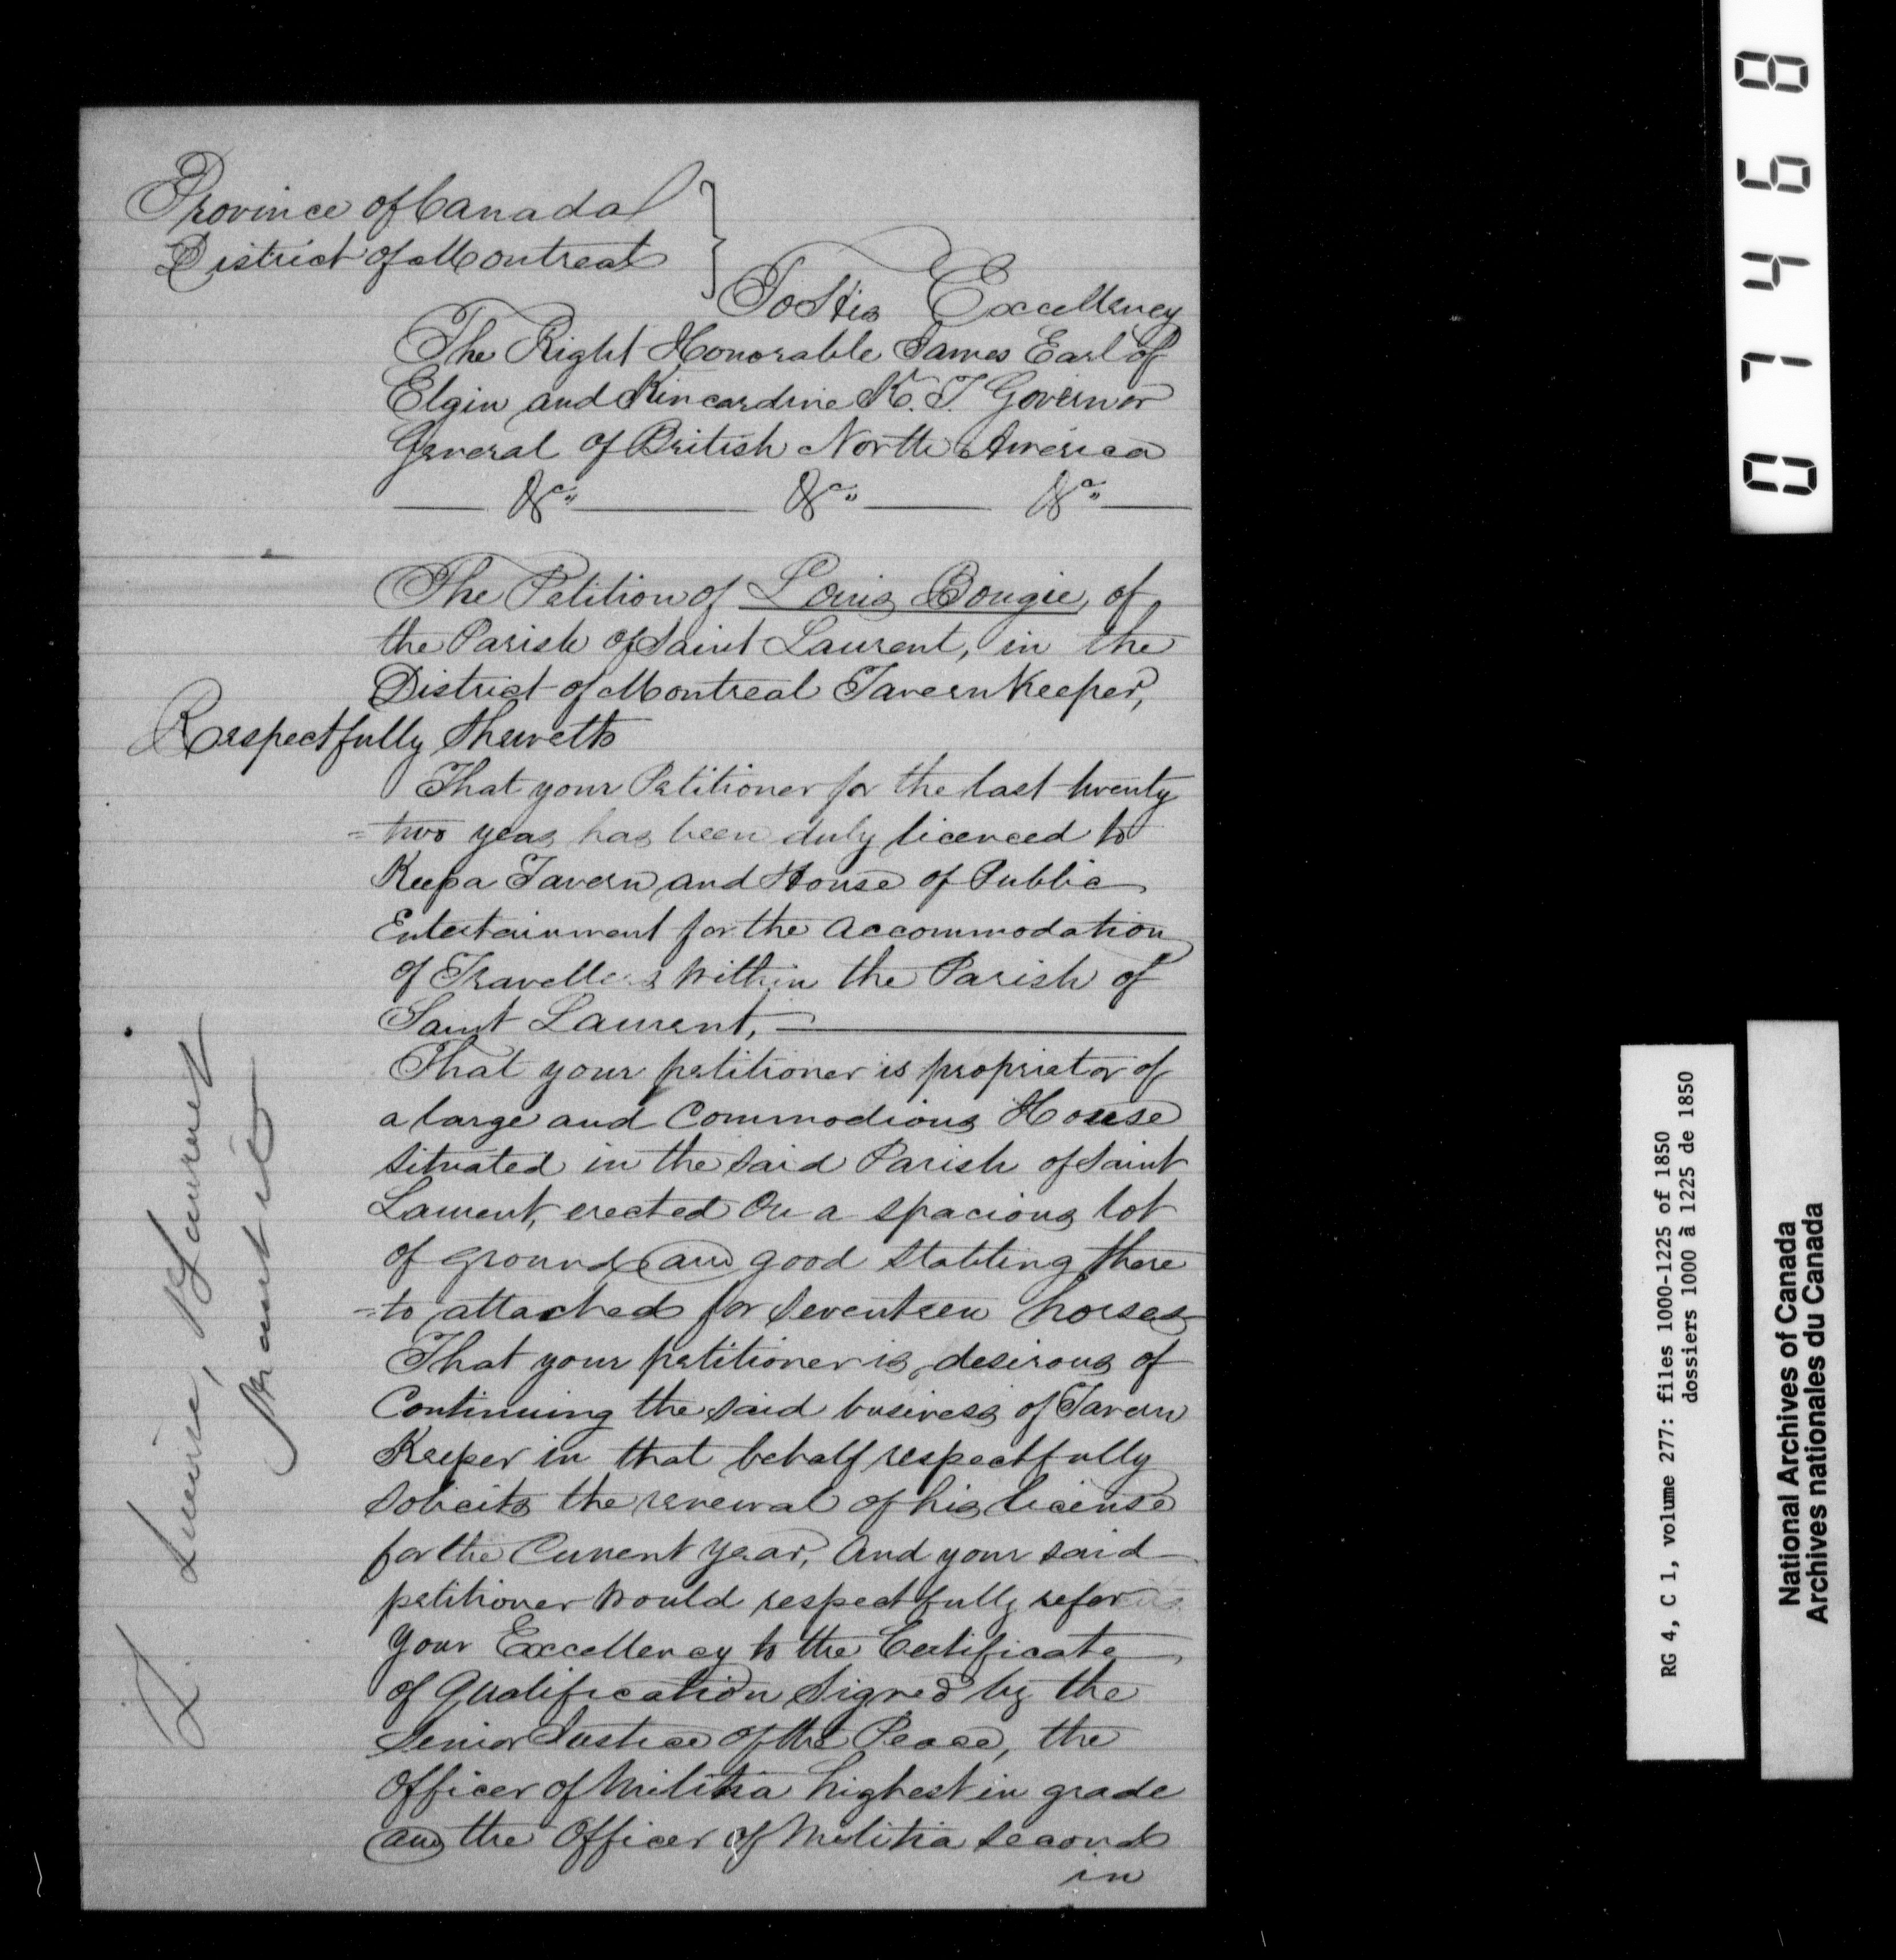 Province of Canada }
District of Montreal }
To His Excellency
The Right Honorable James Earl of
Elgin and Kincardine K. T. Governor
General of British North America
— &ca — &ca — &ca —
The Petition of Louis Bougie, of
the Parish of Saint Laurent, in the
District of Montreal Tavern Keeper,
Respectfully Sheweth
That your Petitioner for the last twenty
=two years has been duly licenced to
Keep a Tavern and House of Public
Entertainment for the accommodation
of Travellers within the Parish of
Saint Laurent, —
That your petitioner is proprietor of
a large and Commodious House
situated in the said Parish of Saint
Laurent, erected on a spacious lot
of ground and good Stabling there
=to attached for Seventeen horses
That your petitioner is desirous of
Continuing the said business of Tavern
Keeper in that behalf respectfully
Solicits the renewal of his license
for the Current year, And your said
petitioner would respectfully refer
your Excellency to the Certificate
of Qualification Signed by the
Senior Justice of the Peace, the
Officer of Militia highest in grade
and the Officer of Militia second
in
T. License, St Laurent
Granted
07468
RG 4, C 1, volume 277: files 1000-1225 of 1850
dossiers 1000 à 1225 de 1850
National Archives of Canada
Archives nationales du Canada